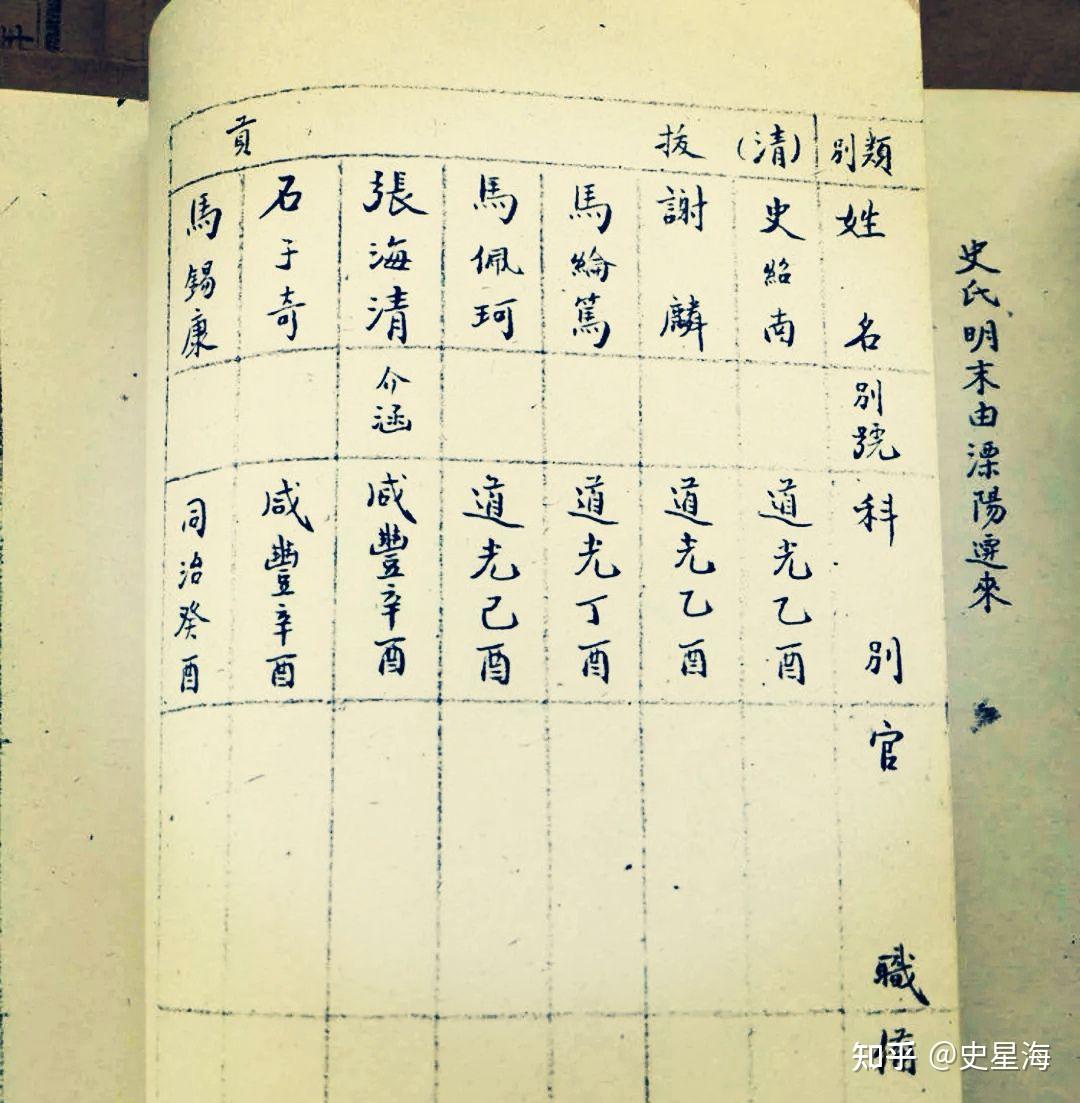 史氏明末由溧陽遷來
類別
姓名
別號
科別
官職
備
(清)拔貢
史紹南
道光乙酉
謝麟
道光乙酉
馬綸篤
道光丁酉
馬佩珂
道光己酉
張海清
介涵
咸豐辛酉
石于奇
咸豐辛酉
馬錫康
同治癸酉
知乎 @史星海